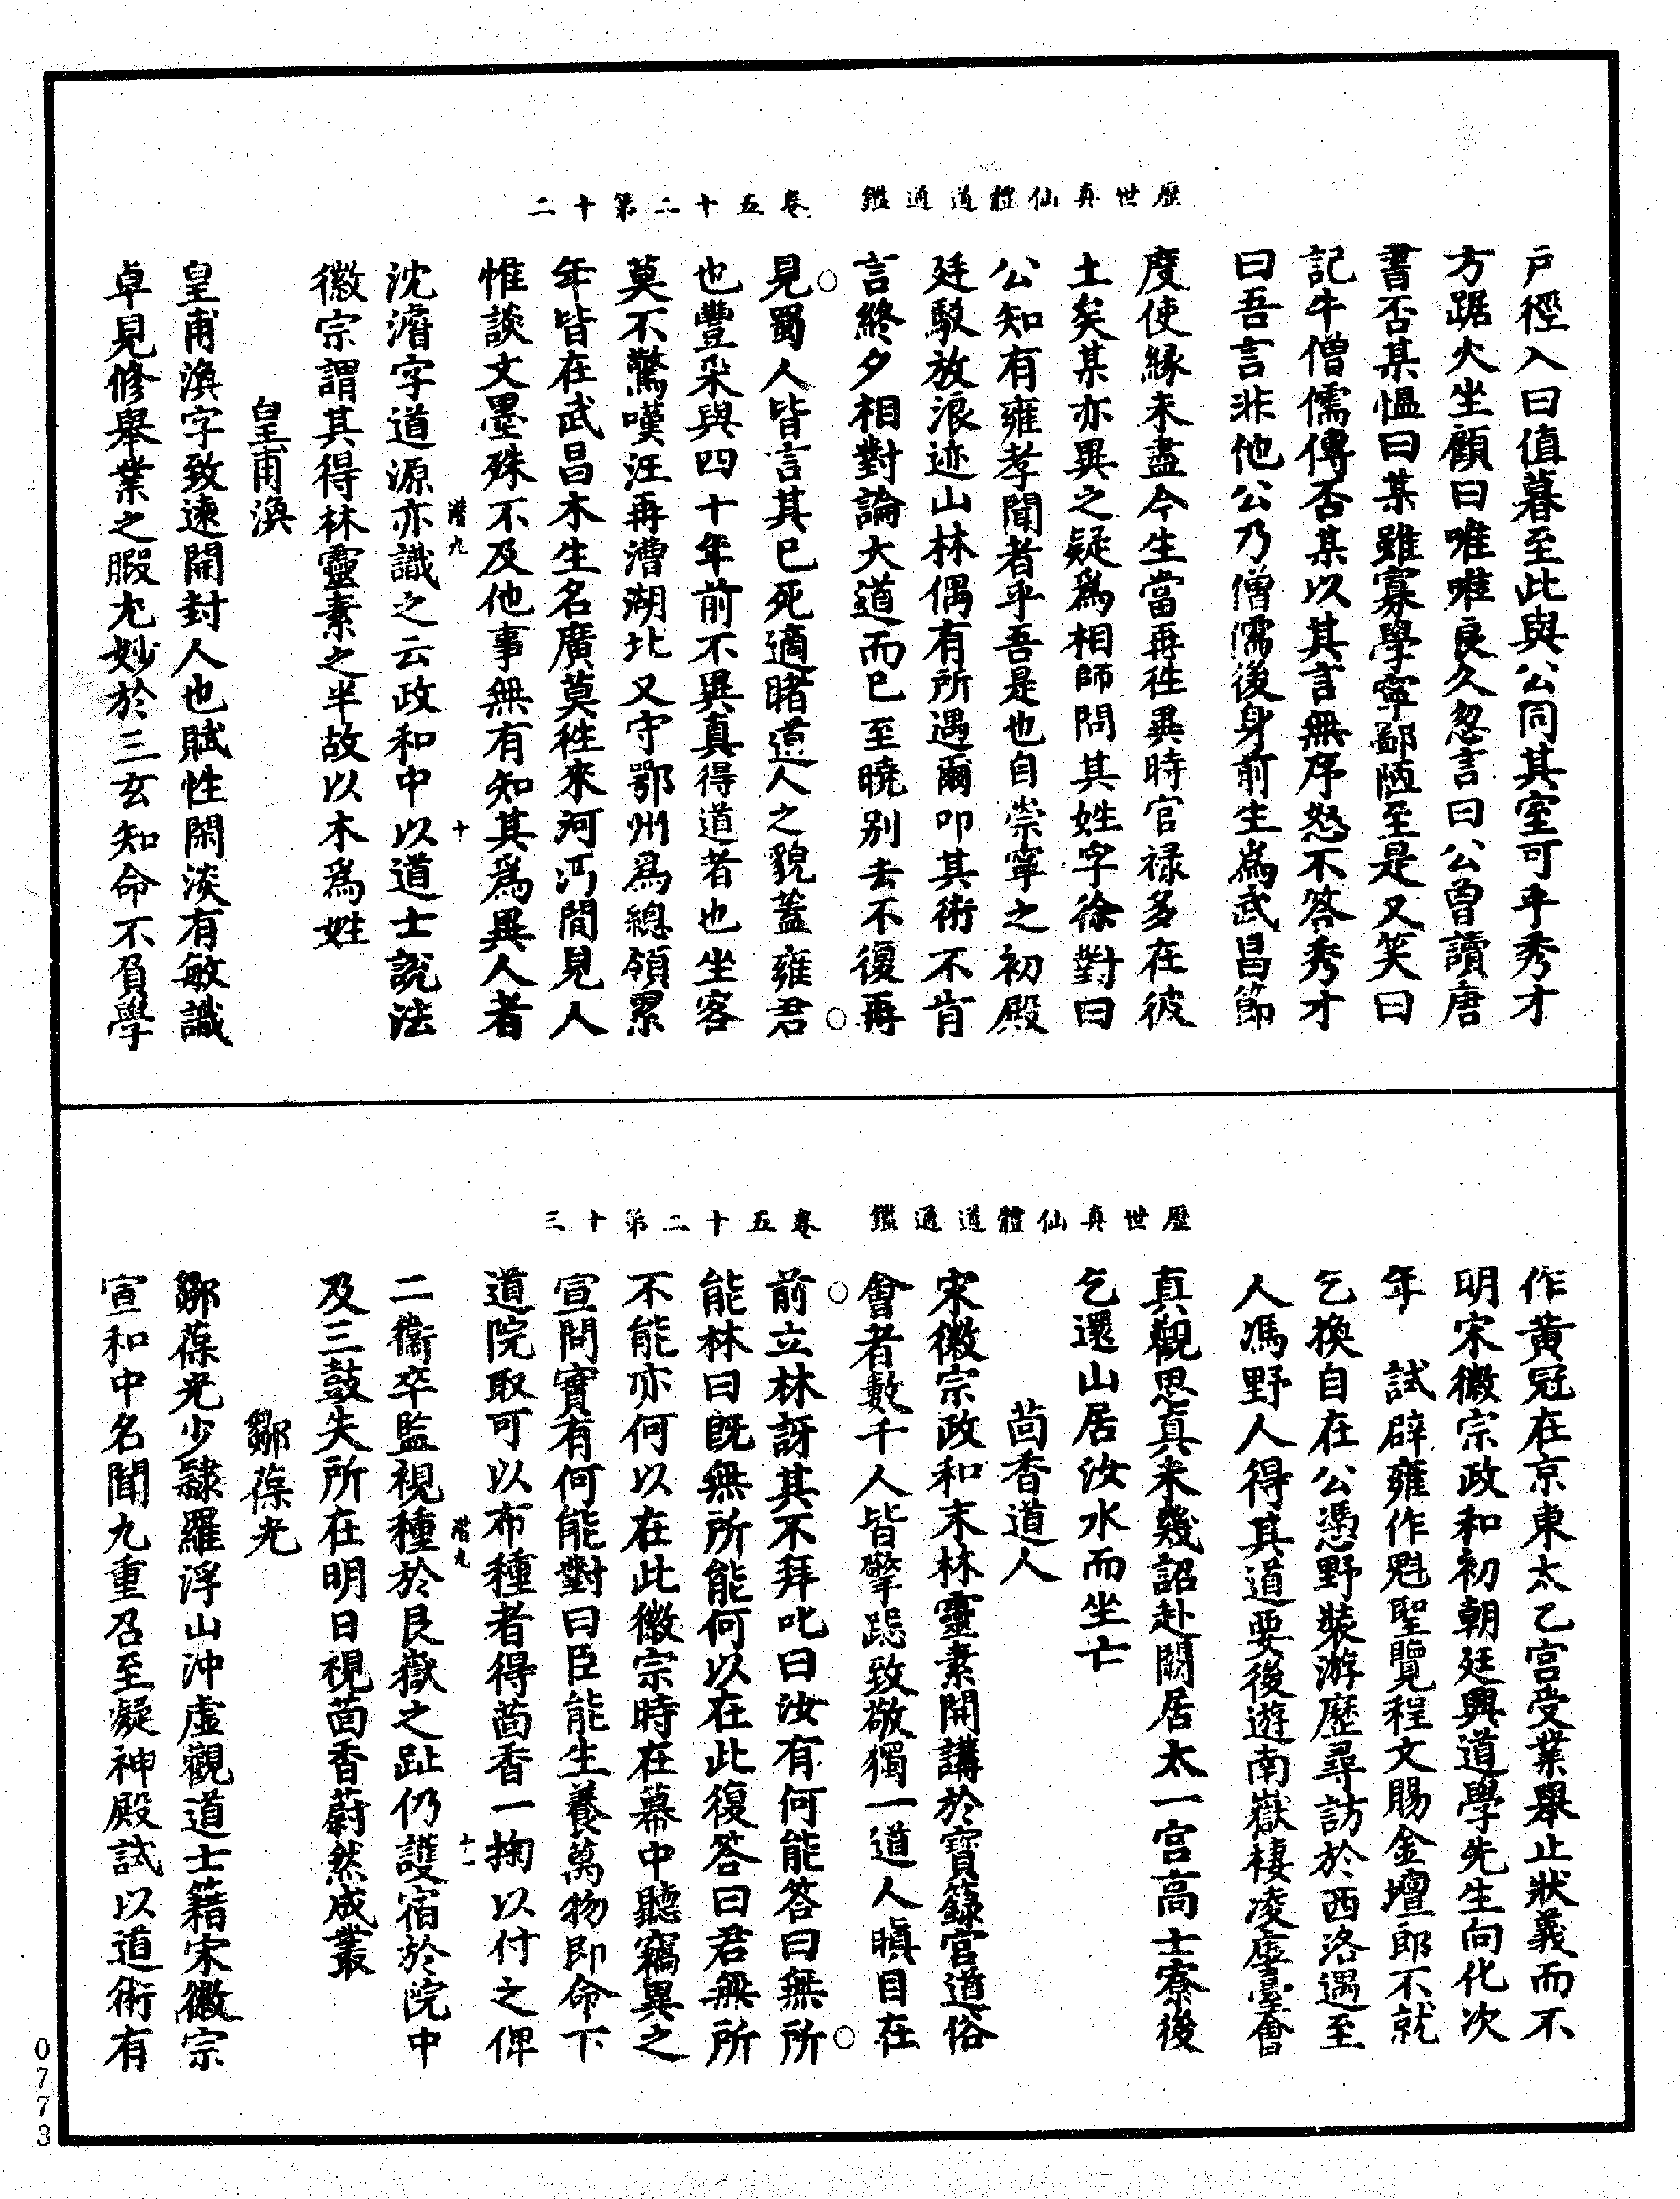 歷世真仙體道通鑑　卷五十二第十二
戶徑入曰值暮至此與公同其室可乎秀才
方踞火坐顧曰唯唯良久忽言曰公曾讀唐
書否某愠曰某雖寡學寧鄙陋至是又笑曰
記牛僧儒傳否某以其言無序怒不答秀才
曰吾言非他公乃僧濡後身前生為武昌節
度使緣未盡今生當再徃異時官禄多在彼
土矣某亦異之疑為相師問其姓字徐對曰
公知有雍孝聞者乎吾是也自崇寧之初殿
廷駁放浪迹山林偶有所遇爾叩其術不肯
言終夕相對論大道而已至曉別去不復再
見蜀人皆言其已死適睹道人之貌蓋雍君
也豐采與四十年前不異真得道者也坐客
莫不驚嘆汪再漕湖北又守鄂州為總領累
年皆在武昌木生名廣莫徃來河沔間見人
惟談文墨殊不及他事無有知其為異人者
潜九　十
沈濬字道源亦識之云政和中以道士說法
徽宗謂其得林靈素之半故以木為姓
皇甫渙
皇甫渙字致遠開封人也賦性閑淡有敏識
卓見修舉業之暇尤妙於三玄知命不負學
歷世真仙體道通鑑　卷五十二第十三
作黃冠在京東太乙宮受業舉止狀義而不
明宋徽宗政和初朝廷興道學先生向化次
年　試辟雍作魁聖覽程文賜金壇郎不就
乞換自在公憑野裝游歷尋訪於西洛遇至
人馮野人得其道要後遊南嶽棲凌虛臺會
真觀思真未幾詔赴闕居太一宮高士寮後
乞還山居汝水而坐亡
茴香道人
宋徽宗政和末林靈素開講於寶籙宮道俗
會者數千人皆擎跽致敬獨一道人瞋目在
前立林訝其不拜叱曰汝有何能答曰無所
能林曰既無所能何以在此復答曰君無所
不能亦何以在此徽宗時在幕中聽竊異之
宣問實有何能對曰臣能生養萬物即命下
道院取可以布種者得茴香一掬以付之俾
潜九　十一
二衞卒監視種於艮嶽之趾仍護宿於院中
及三鼓失所在明日視茴香蔚然成叢
鄒葆光
鄒葆光少隸羅浮山沖虛觀道士籍宋徽宗
宣和中名聞九重召至凝神殿試以道術有
0773